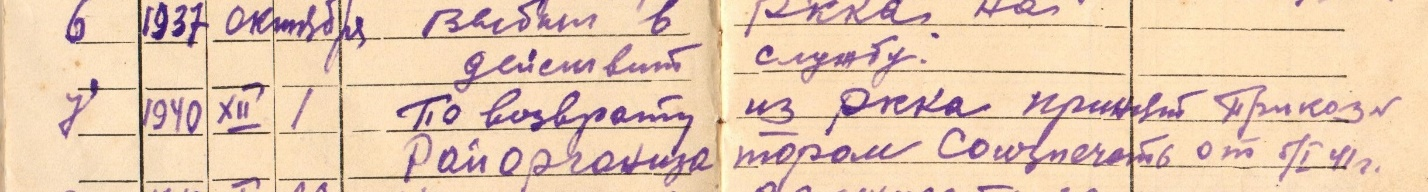 6 1937 октября Выбыл в РККА на
действит службу.
7 1940 XII 1 По возврату из РККА принят Приказ №
Райорганизатором Союзпечать от 5/I 41 г.